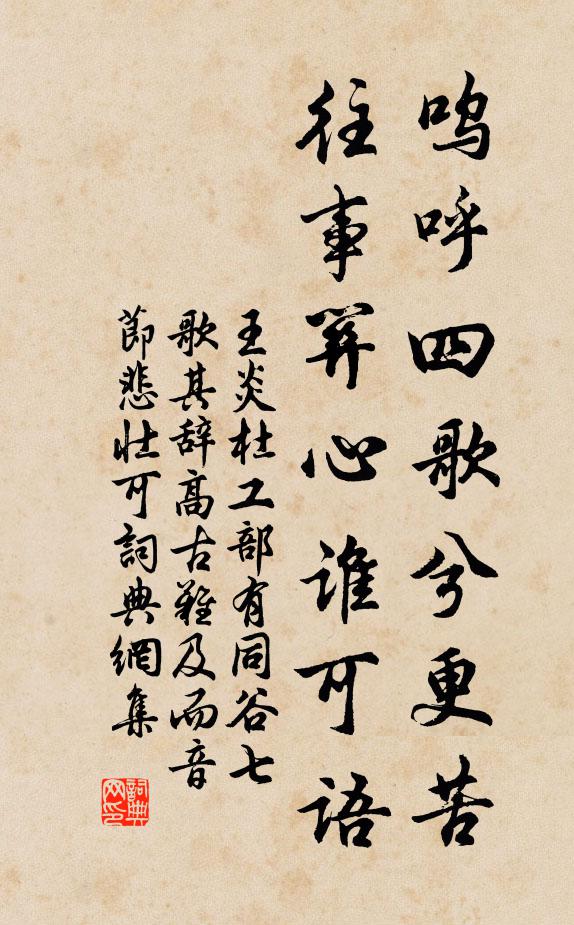 嗚呼四歌兮更苦
往事筭心誰可語
王炎杜工部有同谷七
歌其辞高古難及而音
節悲壯可詞典網集
詞典
网印